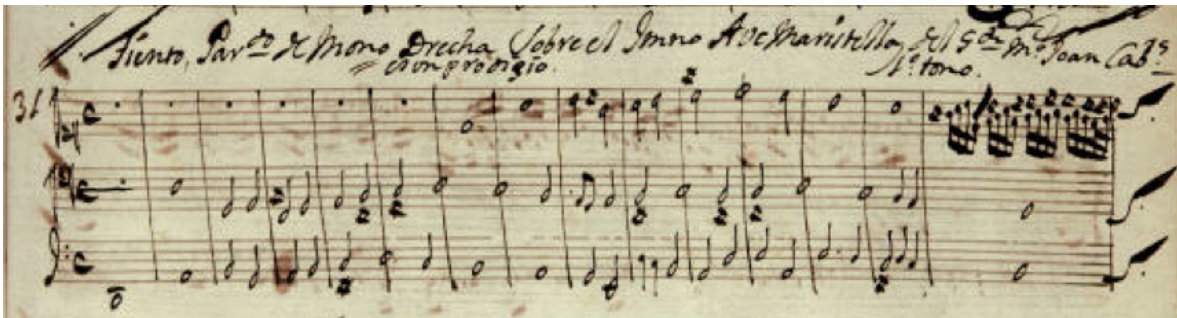 Tiento, Partdo de Mono Drecha Sobre el Imno Ave Maristella del Sdor Mo. Joan Cabs
es un prodigio. 1.o tono.
31